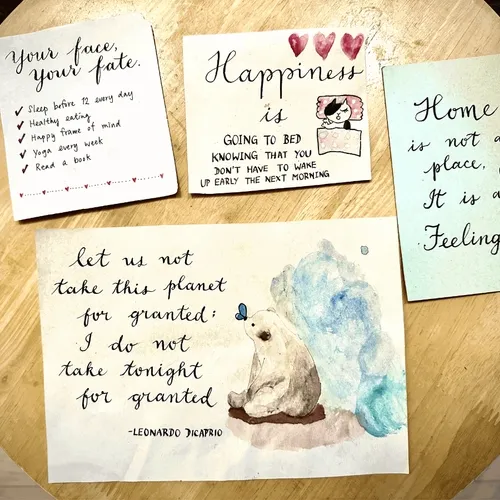 Your face,
Your fate.
✔ Sleep before 12 every day
✔ Healthy eating
✔ Happy frame of mind
✔ Yoga every week
✔ Read a book
Happiness
is
GOING TO BED
KNOWING THAT YOU
DON'T HAVE TO WAKE
UP EARLY THE NEXT MORNING
Home
is not a
place,
It is a
Feeling
let us not
take this planet
for granted;
I do not
take tonight
for granted
-LEONARDO DICAPRIO